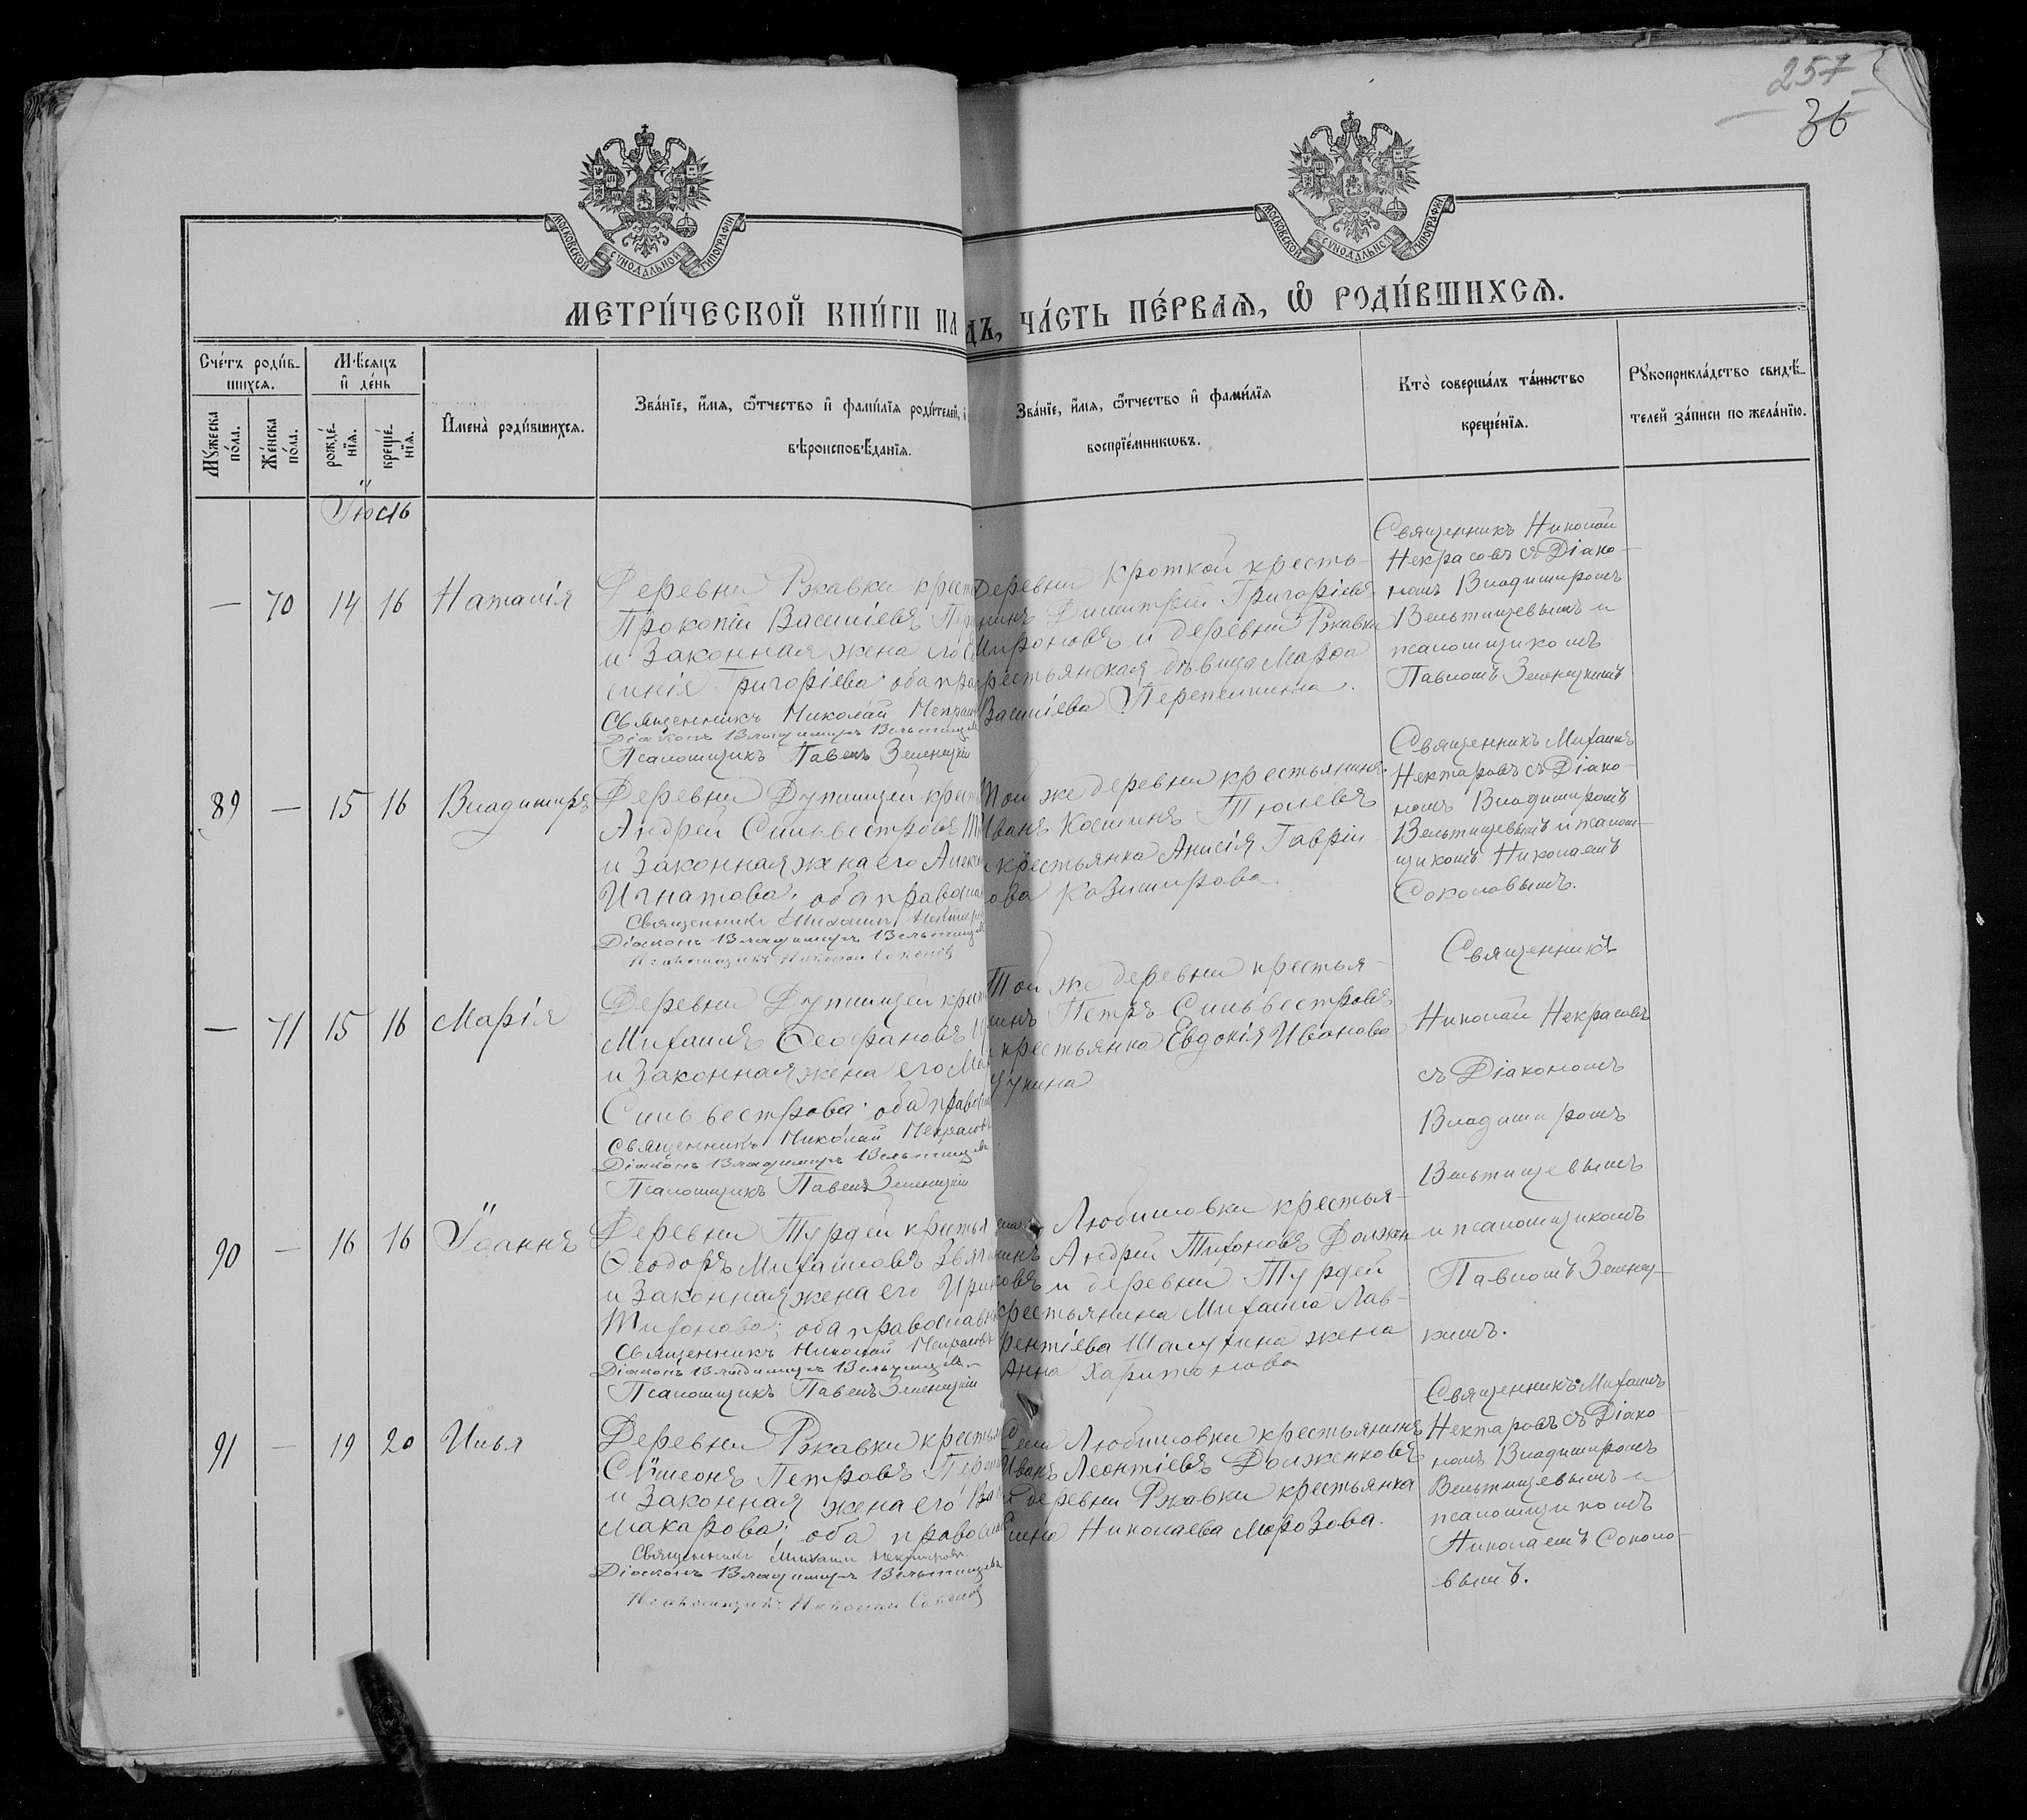 257
36
МОСКОВСКОЙ СѴНОДАЛЬНОЙ ТИПОГРАФІИ
МОСКОВСКОЙ СѴНОДАЛЬНОЙ ТИПОГРАФІИ
МЕТРИ́ЧЕСКОЙ КНИ́ГИ НА
ДЪ, ЧА́СТЬ ПЕ́РВАѦ, Ѡ РОДИ́ВШИХСѦ.
Сче́тъ роди́в-
шихсѧ.
Му́жеска по́ла.
Же́нска по́ла.
Мѣ́сяцъ
и де́нь
рожде́-
нїѧ.
креще́-
нїѧ.
Имена̀ роди́вшихсѧ.
Зва́нїе, и́мѧ, ѻ́тчество и фами́лїѧ роди́телей,
вѣроисповѣ́данїѧ.
Зва́нїе, и́мѧ, ѻ́тчество и фами́лїѧ
воспрїе́мникωвъ.
Кто̀ соверша́лъ та́инство
креще́нїѧ.
Рꙋкоприкла́дство свидѣ́-
телей за́писи по жела́нїю.
Іюль
— 70 14 16 Наталія
Деревни Ржавки крест
Прокопій Василіевъ Пере
и законная жена его
Григоріева оба прав
Священникъ Николай Некрасов
Діаконъ Владимиръ Вельтищев
Псаломщикъ Павелъ Зеленецкій
Деревни Кроткой кресть-
нинъ Димитрій Григоріевъ
Мироновъ и деревни Ржавки
крестьянская дѣвица Марѳа
Василіева Перепелкина.
Священникъ Николай
Некрасовъ съ Діако-
номъ Владимиромъ
Вельтищевымъ и
псаломщикомъ
Павломъ Зеленецкимъ
89 — 15 16 Владимиръ
Деревни крест
Андрей Сильвестровъ
и законная жена его
Игнатова; оба правосла
Священникъ Михаилъ Нектаров
Діаконъ Владимиръ Вельтищев
Псаломщикъ Николай Соколовъ
Той же деревни крестьянинъ
Иванъ Косминъ Тюлевъ
и крестьянка Анисія Гаврі
ова Казимирова.
Священникъ Михаилъ
Нектаровъ съ Діако-
номъ Владимиромъ
Вельтищевымъ и псалом-
щикомъ Николаемъ
Соколовымъ.
— 71 15 16 Марія
Деревни крест
Михаилъ Ѳеофановъ
и законная жена его
Сильвестрова; оба правосл
Священникъ Николай Некрасовъ
Діаконъ Владимиръ Вельтищев
Псаломщикъ Павелъ Зеленецкій
Той же деревни крестья-
нинъ Петръ Сильвестровъ
и крестьянка Евдокія Иванова
Священникъ
Николай Некрасовъ
съ Діакономъ
Владимиромъ
Вельтищевымъ
и псаломщикомъ
Павломъ Зеленец-
кимъ.
90 — 16 16 Іоаннъ
Деревни Турдей крестья
Ѳеодоръ Михайловъ
и законная жена его Ири
Тихонова; оба православн
Священникъ Николай Некрасовъ
Діаконъ Владимиръ Вельтищев
Псаломщикъ Павелъ Зеленецкій
Любимовки крестья-
нинъ Андрей Тихоновъ Должен
ковъ и деревни Турдей
крестьянина Михаила Лав-
рентіева Шалухина жена
Анна Харитонова
91 — 19 20 Илья
Деревни Ржавки крестья
Сѵмеонъ Петровъ Переп
и законная жена его
Макарова; оба правосла
Священникъ Михаилъ Нектаровъ
Діаконъ Владимиръ Вельтищевъ
Псаломщикъ Николай Соколовъ
Села Любимовки крестьянинъ
Иванъ Леонтіевъ Долженковъ
и деревни Ржавки крестьянка
Николаева Морозова.
Священникъ Михаилъ
Нектаровъ съ Діако-
номъ Владимиромъ
Вельтищевымъ и
псаломщикомъ
Николаемъ Соколо-
вымъ.